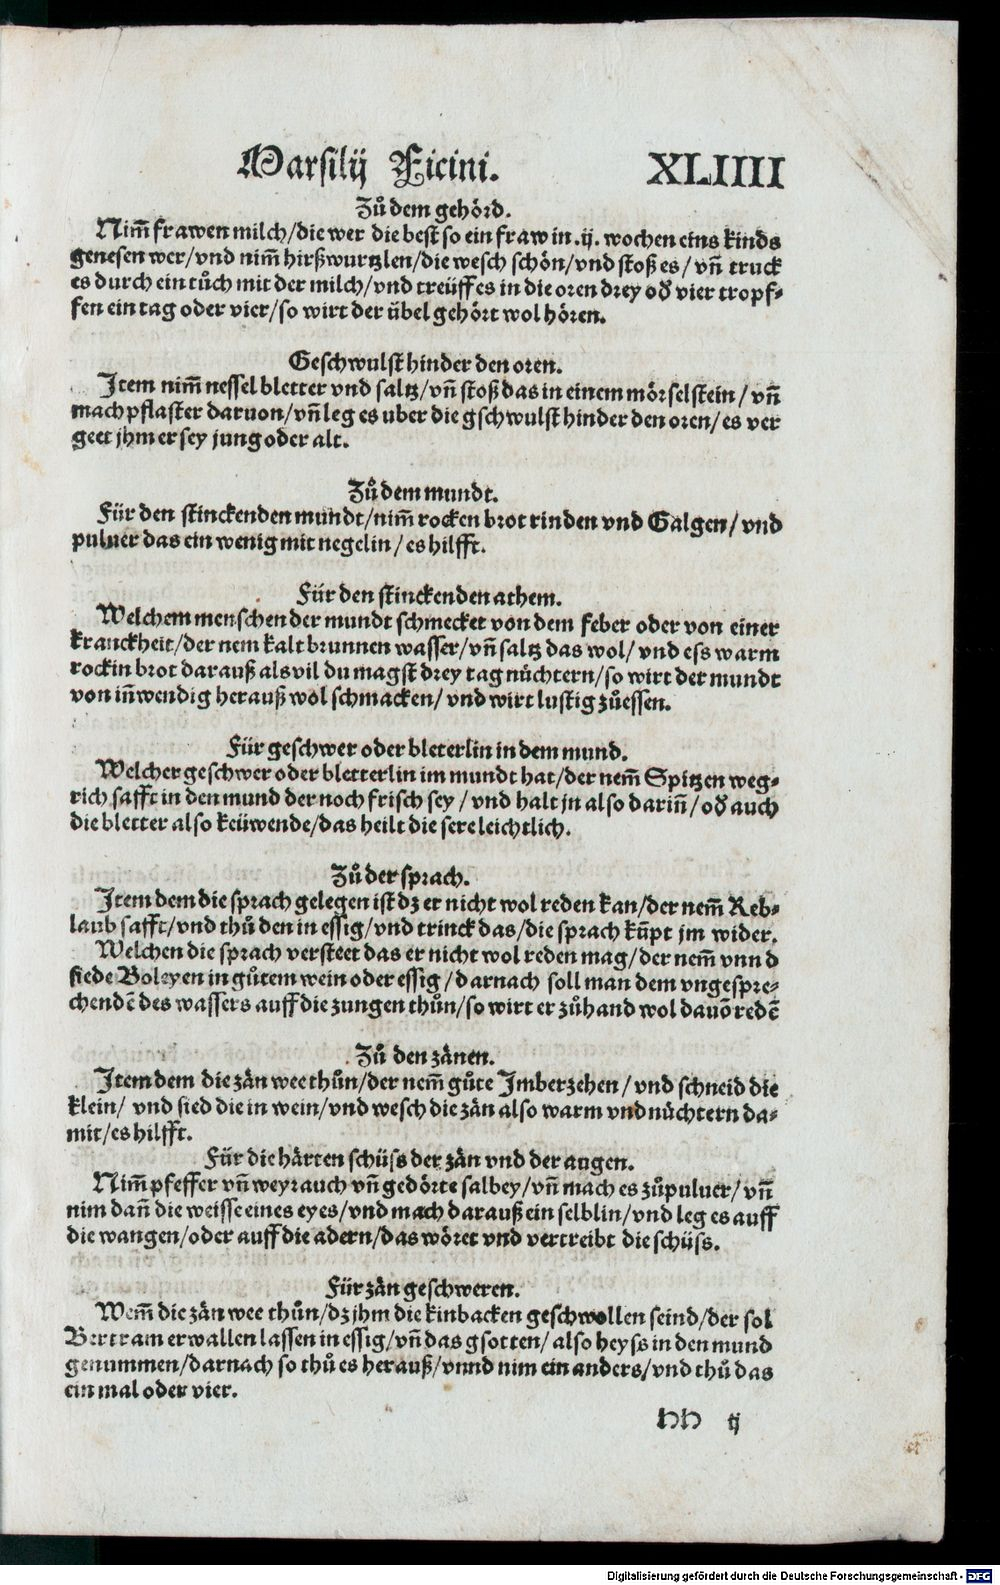 Marsilij Ficini. XLIIII
Zů dem gehörd.
Nim̃ frawen milch/die wer die best so ein fraw in .ij. wochen eins kinds
genesen wer/vnd nim̃ hirßwurtzlen/die wesch schön/vnd stoß es/vñ truck
es durch ein tůch mit der milch/vnd treüff es in die oren drey oď vier tropf⸗
fen ein tag oder vier/so wirt der übel gehört wol hören.
Geschwulst hinder den oren.
Item nim̃ nessel bletter vnd saltz/vñ stoß das in einem mörselstein/vñ
mach pflaster daruon/vñ leg es uber die gschwulst hinder den oren/es ver
geet jhm er sey jung oder alt.
Zů dem mundt.
Für den stinckenden mundt/nim̃ rocken brot rinden vnd Galgen/vnd
puluer das ein wenig mit negelin/es hilfft.
Für den stinckenden athem.
Welchem menschen der mundt schmecket von dem feber oder von einer
kranckheit/der nem kalt brunnen wasser/vñ saltz das wol/vnd ess warm
rockin brot darauß als vil du magst drey tag nüchtern/so wirt der mundt
von iñwendig herauß wol schmacken/vnd wirt lustig zůessen.
Für geschwer oder bleterlin in dem mund.
Welcher geschwer oder bletterlin im mundt hat/der nem̃ Spitzen weg⸗
rich safft in den mund der noch frisch sey/vnd halt jn also dariñ/oď auch
die bletter also keüwende/das heilt die sere leichtlich.
Zů der sprach.
Item dem die sprach gelegen ist dz er nicht wol reden kan/der nem̃ Reb⸗
laub safft/vnd thů den in essig/vnd trinck das/die sprach kũpt jm wider.
Welchen die sprach versteet das er nicht wol reden mag/der nem̃ vnnd
siede Boleyen in gůtem wein oder essig/darnach soll man dem vngespre⸗
chendẽ des wassers auff die zungen thůn/so wirt er zůhand wol dauõ redẽ
Zů den zänen.
Item dem die zän wee thůn/der nem̃ gůte Imberzehen/vnd schneid die
klein/vnd sied die in wein/vnd wesch die zän also warm vnd nüchtern da⸗
mit/es hilfft.
Für die härten schüss der zän vnd der augen.
Nim̃ pfeffer vñ weyrauch vñ gedörte salbey/vñ mach es zůpuluer/vñ
nim dañ die weisse eines eyes/vnd mach darauß ein selblin/vnd leg es auff
die wangen/oder auff die adern/das wöret vnd vertreibt die schüss.
Für zän geschweren.
Wem̃ die zän wee thůn/dz jhm die kinbacken geschwollen seind/der sol
Bertram erwallen lassen in essig/vñ das gsotten/also heyss in den mund
genummen/darnach so thů es herauß/vnnd nim ein anders/vnd thů das
ein mal oder vier.
hh ij
Digitalisierung gefördert durch die Deutsche Forschungsgemeinschaft - DFG